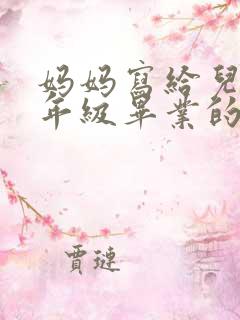 妈妈寫給兒
年級畢業的
賈璉